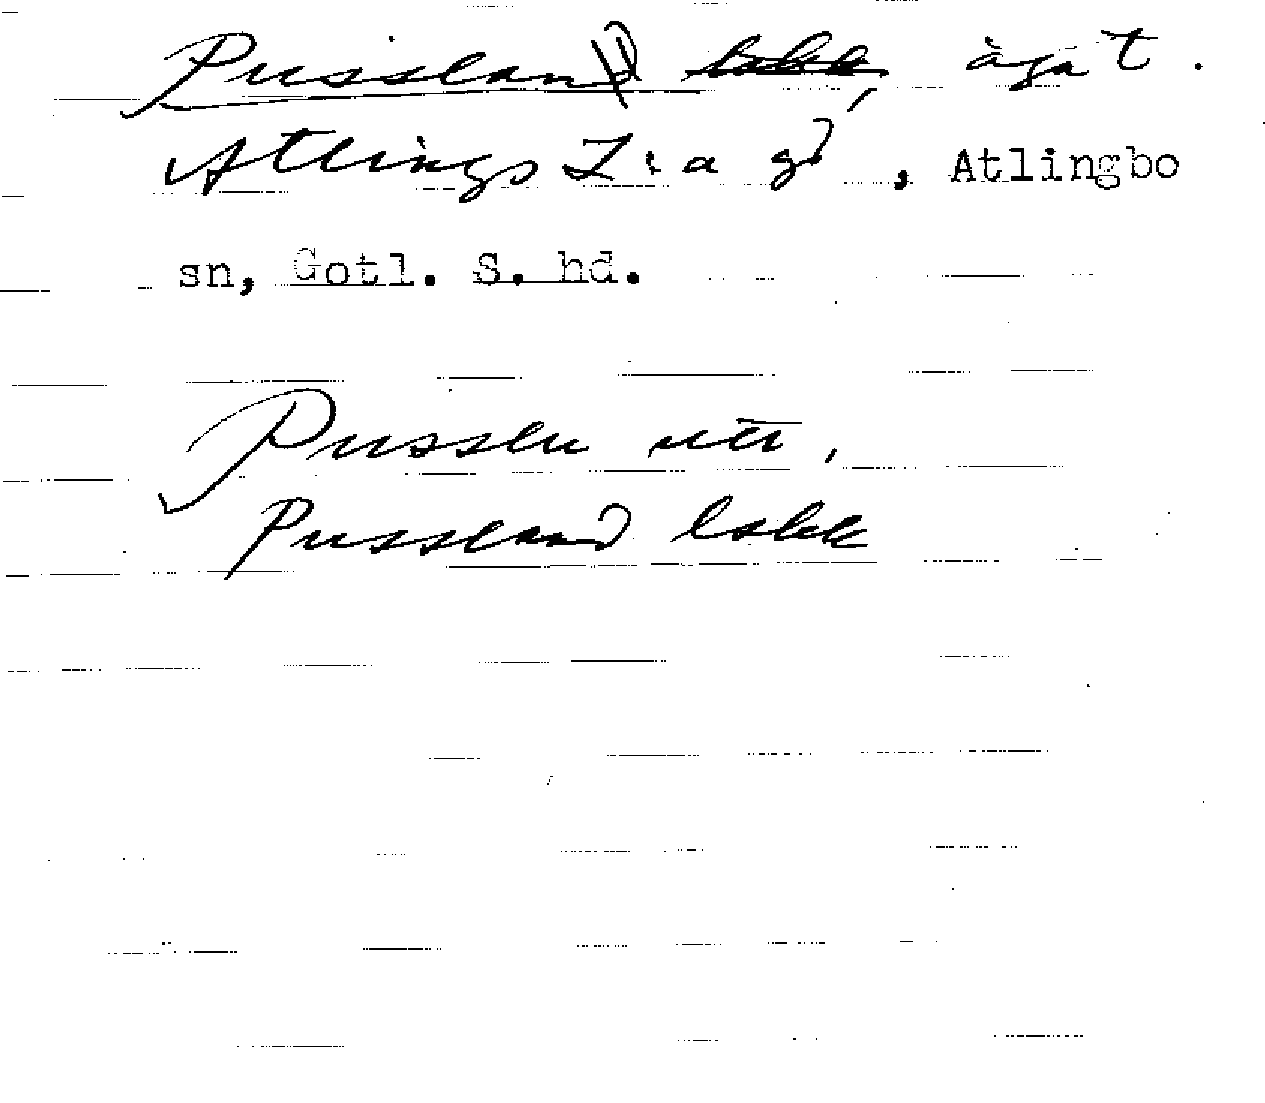 Pussland, ägat.
Atlings L:a gd, Atlingbo
sn, Gotl. S. hd.
Pusslu
Pussland